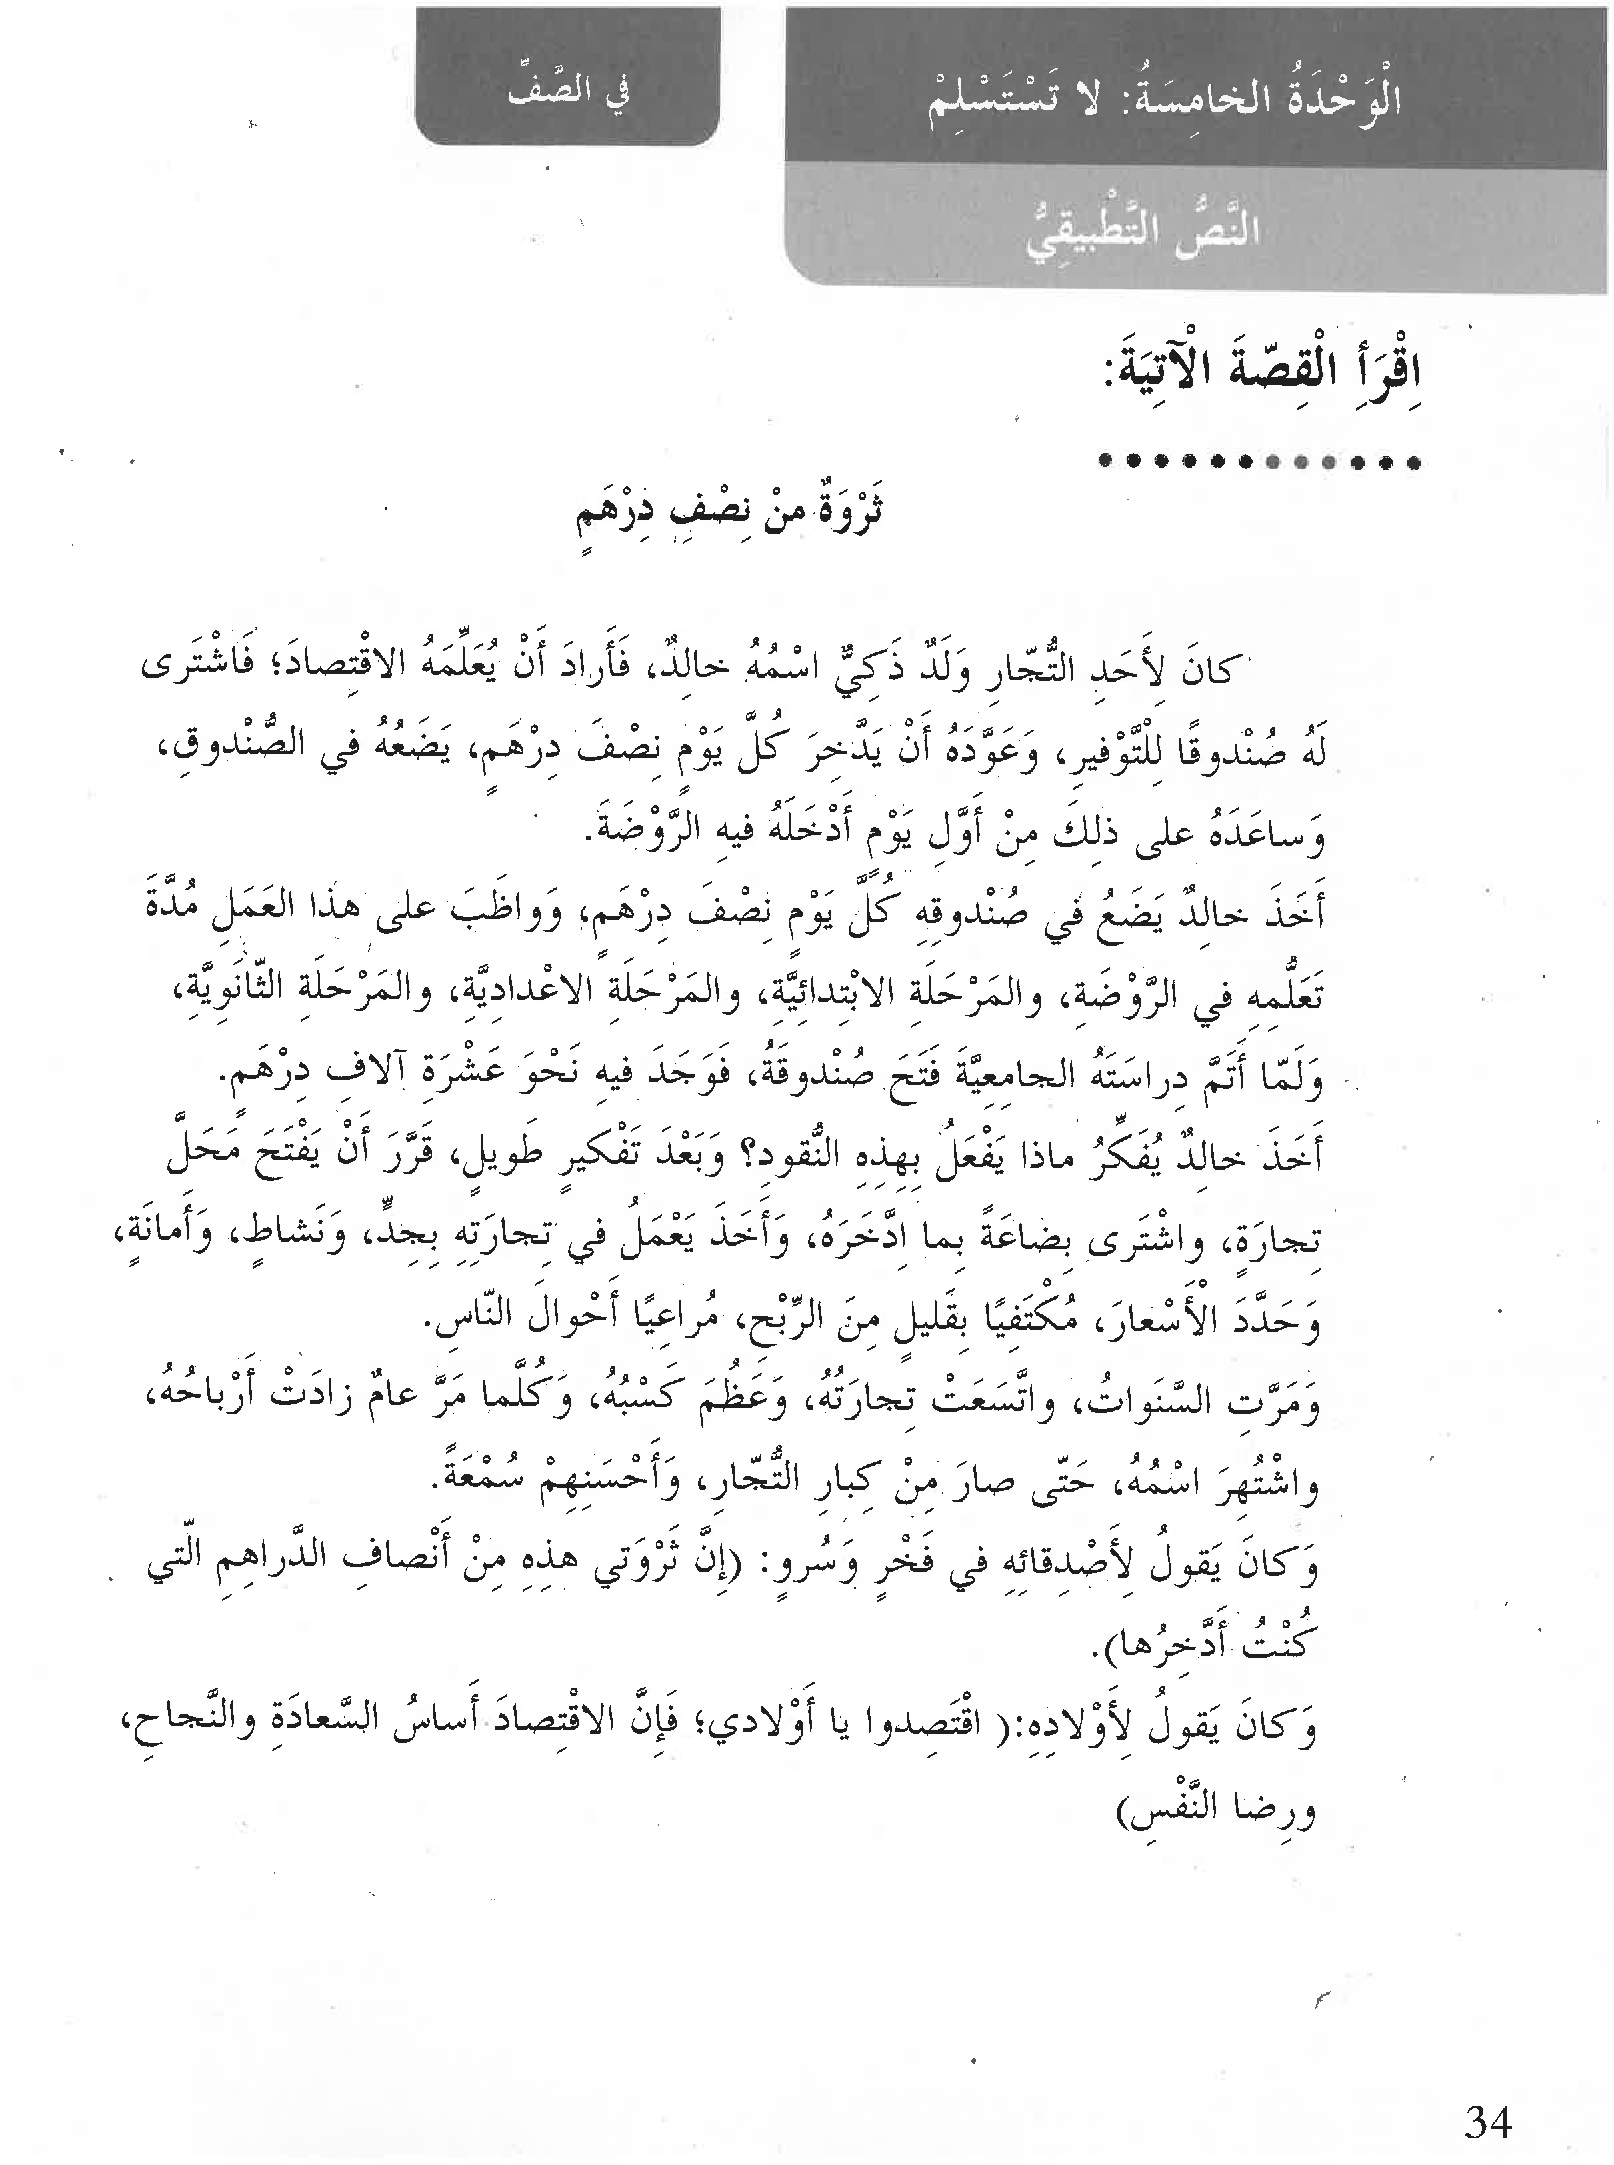 الْوَحْدَةُ الخامِسَةُ: لا تَسْتَسْلِمْ
في الصَّفِّ
النَّصُّ التَّطْبيقِيُّ
اِقْرَأِ الْقِصّةَ الْآتِيَةَ:
ثَرْوَةٌ منْ نِصْفِ دِرْهَمٍ
كانَ لِأَحَدِ التُّجّارِ وَلَدٌ ذَكِيٌّ اسْمُهُ خالِدٌ، فَأَرادَ أَنْ يُعَلِّمَهُ الاقْتِصادَ؛ فَاشْتَرى
لَهُ صُنْدوقًا لِلتَّوْفيرِ، وَعَوَّدَهُ أَنْ يَدَّخِرَ كُلَّ يَوْمٍ نِصْفَ دِرْهَمٍ، يَضَعُهُ في الصُّنْدوقِ،
وَساعَدَهُ على ذلِكَ مِنْ أَوَّلِ يَوْمٍ أَدْخَلَهُ فيهِ الرَّوْضَةَ.
أَخَذَ خالِدٌ يَضَعُ في صُنْدوقِهِ كُلَّ يَوْمٍ نِصْفَ دِرْهَمٍ، وَواظَبَ على هذا العَمَلِ مُدَّةَ
تَعَلُّمِهِ في الرَّوْضَةِ، والمَرْحَلَةِ الابْتِدائِيَّةِ، والمَرْحَلَةِ الاعْدادِيَّةِ، والمَرْحَلَةِ الثّانَوِيَّةِ،
وَلَمّا أَتَمَّ دِراسَتَهُ الجامِعِيَّةَ فَتَحَ صُنْدوقَهُ، فَوَجَدَ فيهِ نَحْوَ عَشْرَةِ آلافِ دِرْهَمٍ.
أَخَذَ خالِدٌ يُفَكِّرُ ماذا يَفْعَلُ بِهذِهِ النُّقودِ؟ وَبَعْدَ تَفْكيرٍ طَويلٍ، قَرَّرَ أَنْ يَفْتَحَ مَحَلَّ
تِجارَةٍ، واشْتَرى بِضاعَةً بِما اِدَّخَرَهُ، وَأَخَذَ يَعْمَلُ في تِجارَتِهِ بِجِدٍّ، وَنَشاطٍ، وَأَمانَةٍ،
وَحَدَّدَ الْأَسْعارَ، مُكْتَفِيًا بِقَليلٍ مِنَ الرِّبْحِ، مُراعِيًا أَحْوالَ النّاسِ.
وَمَرَّتِ السَّنَواتُ، واتَّسَعَتْ تِجارَتُهُ، وَعَظُمَ كَسْبُهُ، وَكُلَّما مَرَّ عامٌ زادَتْ أَرْباحُهُ،
واشْتُهِرَ اسْمُهُ، حَتّى صارَ مِنْ كِبارِ التُّجّارِ، وَأَحْسَنِهِمْ سُمْعَةً.
وَكانَ يَقولُ لِأَصْدِقائِهِ في فَخْرٍ وَسُروٍ: (إِنَّ ثَرْوَتي هذِهِ مِنْ أَنْصافِ الدَّراهِمِ الّتي
كُنْتُ أَدَّخِرُها).
وَكانَ يَقولُ لِأَوْلادِهِ:( اقْتَصِدوا يا أَوْلادي؛ فَإِنَّ الاقْتِصادَ أَساسُ السَّعادَةِ والنَّجاحِ،
ورِضا النَّفْسِ)
34